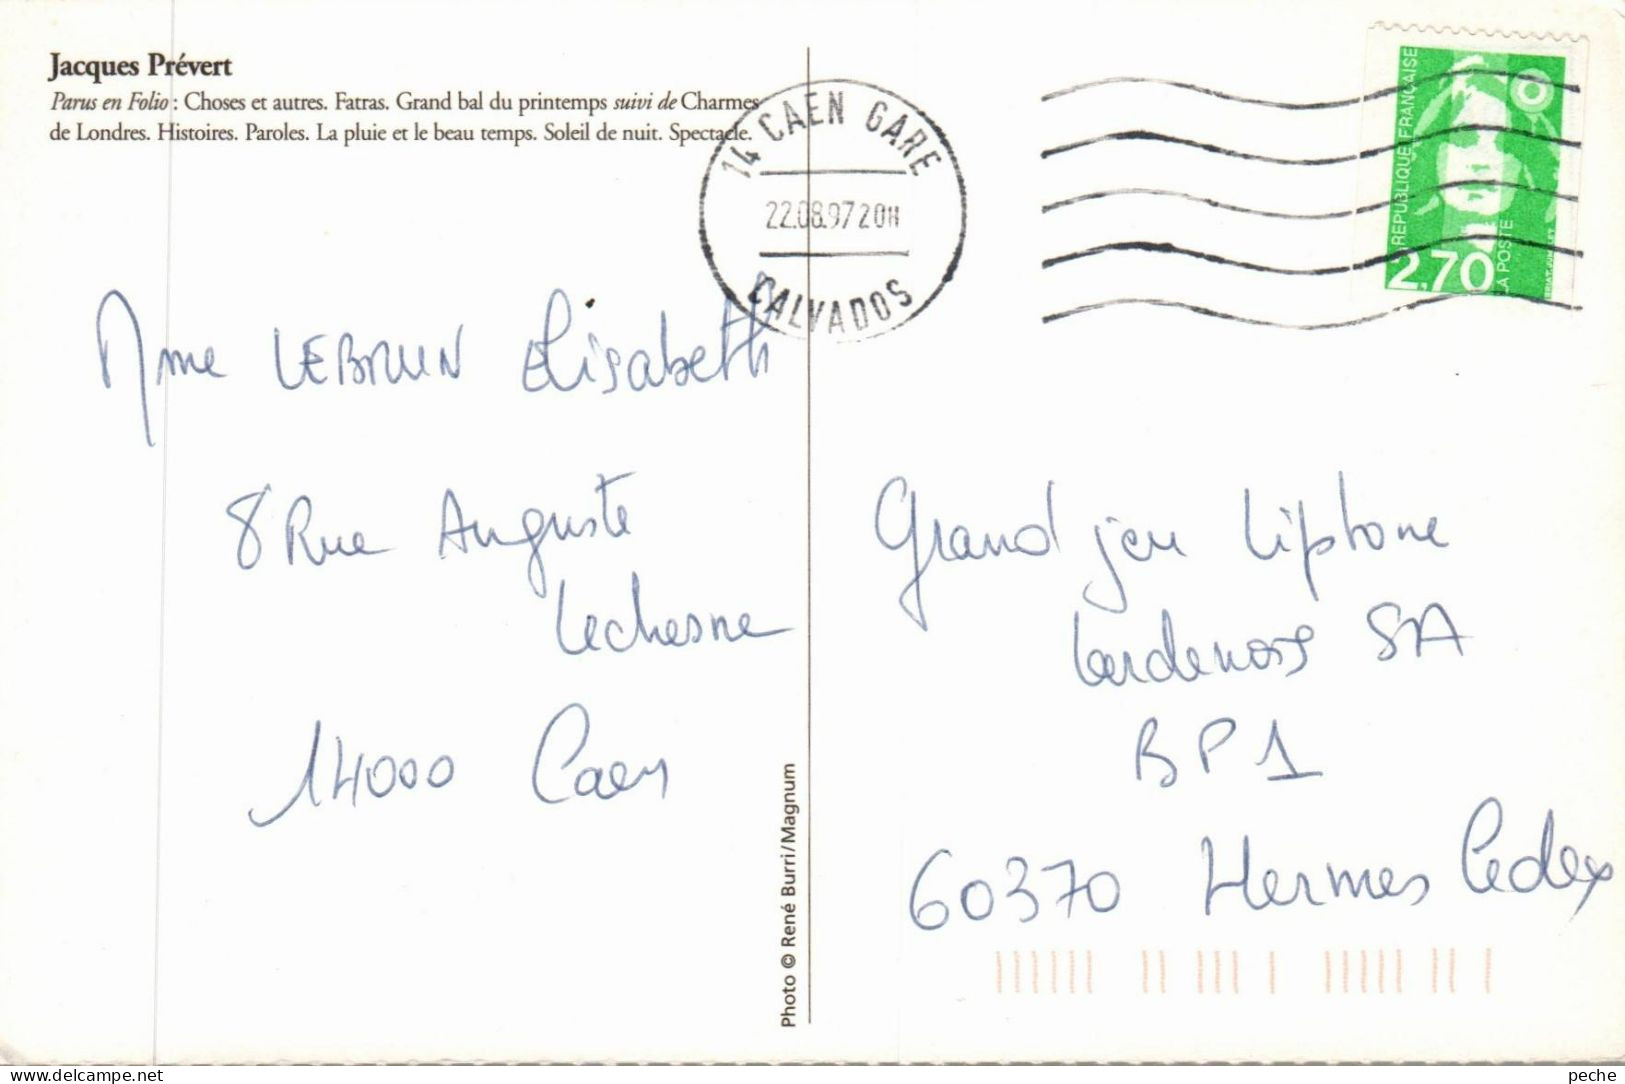 Jacques Prévert
Parus en Folio : Choses et autres. Fatras. Grand bal du printemps suivi de Charmes
de Londres. Histoires. Paroles. La pluie et le beau temps. Soleil de nuit. Spectacle.
14 CAEN GARE
22.08.97 20H
CALVADOS
REPUBLIQUE FRANÇAISE
2,70
LA POSTE
Mme LEBRUN Elisabeth
8 Rue Auguste
Lechesne
14000 Caen
Photo © René Burri/Magnum
Grand jeu Liptone
BP1
60370 Hermes Cedex
SA
www.delcampe.net
peche